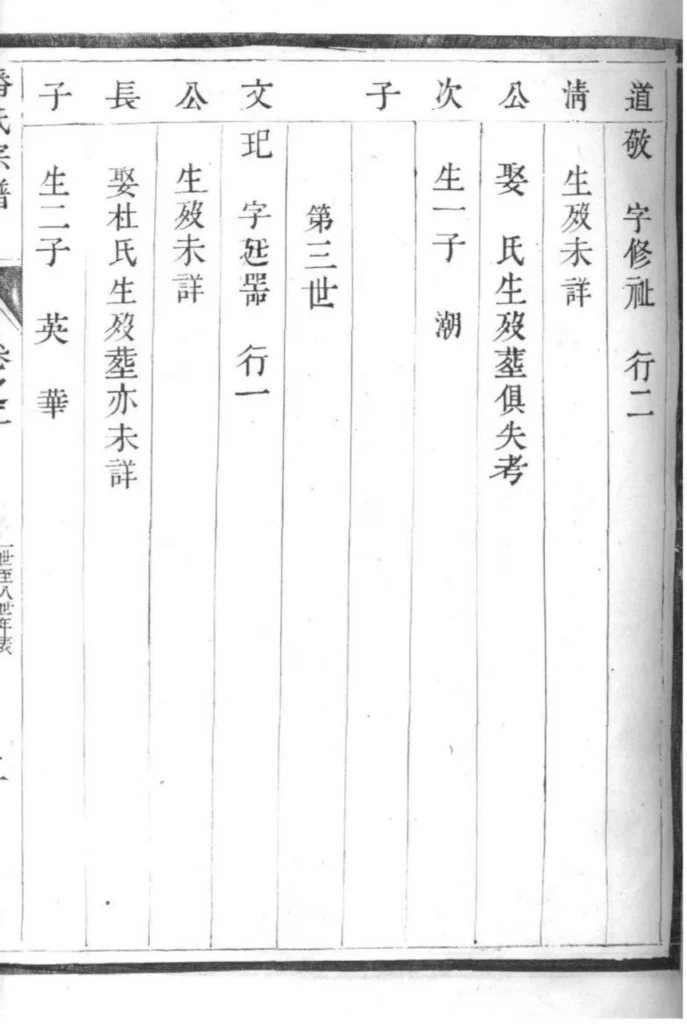 道敬 字修祉 行二
清 生歿未詳
公 娶 氏生歿塟俱失考
次 生一子 潮
子
第三世
文玘 字廷器 行一
公 生歿未詳
長 娶杜氏生歿塟亦未詳
子 生二子 英 華
潘氏宗譜
一世至八世年表